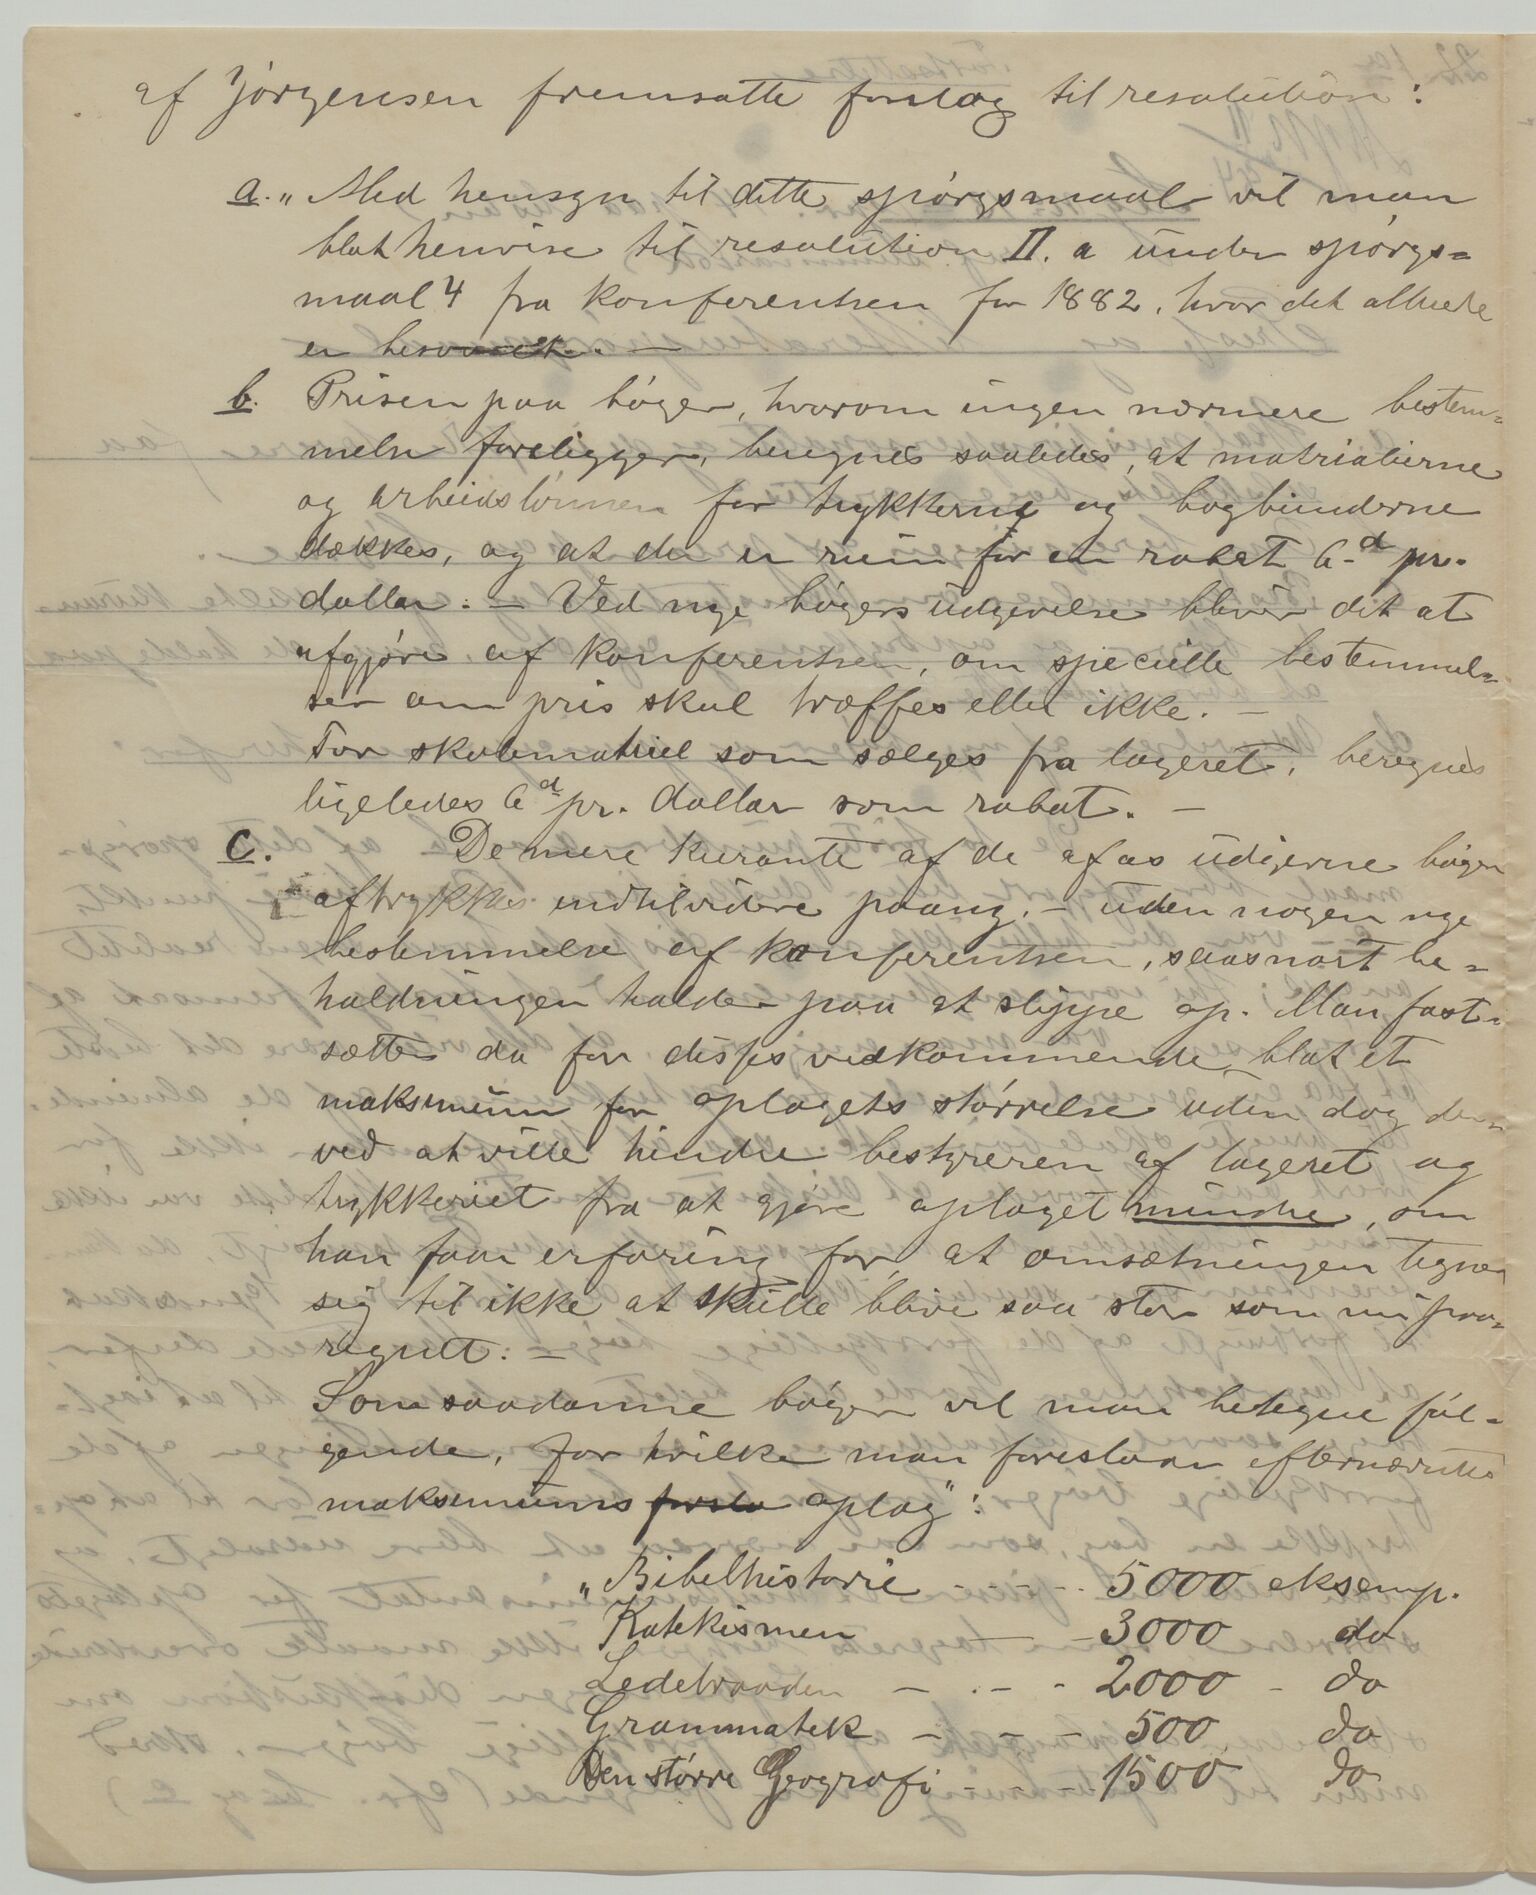 af Jørgensen fremsatte forslag til resolution:
a. „Med hensyn til dette spørgsmaal vil man
blot henvise til resolution II. a under spørgs=
maal 4 fra konferentsen for 1882, hvor det allerede
er besvaret. —
b. Prisen paa bøger, hvorom ingen nærmere bestem=
melse foreligger, beregnes saaledes, at matrialierne
og arbeidslønnen for trykkerne og bogbinderne
dækkes, og at der er rum for en rabat 6d pr.
dollar. — Ved nye bøgers udgivelse bliver det at
afgjøre af konferentsen, om specielle bestemmel=
ser om pris skal træffes eller ikke. —
For skolematriel som sælges fra lageret, beregnes
ligeledes 6d pr. dollar som rabat. —
c. De mere kurante af de af os udgivne bøger
aftrykkes indtilvidere paany. — uden nogen nye
bestemmelse af konferentsen, saasnart be=
holdningen holder paa at slippe op. Man fast=
sætter da for disses vedkommende blot et
maksimum for oplagets størrelse uden dog der=
ved at ville hindre bestyreren af lageret og
trykkeriet fra at gjøre oplaget mindre, om
han faar erfaring for, at omsætningen tegner
sig til ikke at skulle blive saa stor som nu paa=
regnet. —
Som saadanne bøger vil man betegne føl=
gende, for hvilke man foreslaar efternævnte
maksimums forsla oplag":
„Bibelhistorie - - - - 5000 eksemp.
Katekismen — - 3000 do
Ledetraaden - . - - 2000 - do
Grammatik - - - 500 do
Den større Geografi - - - 1500 do